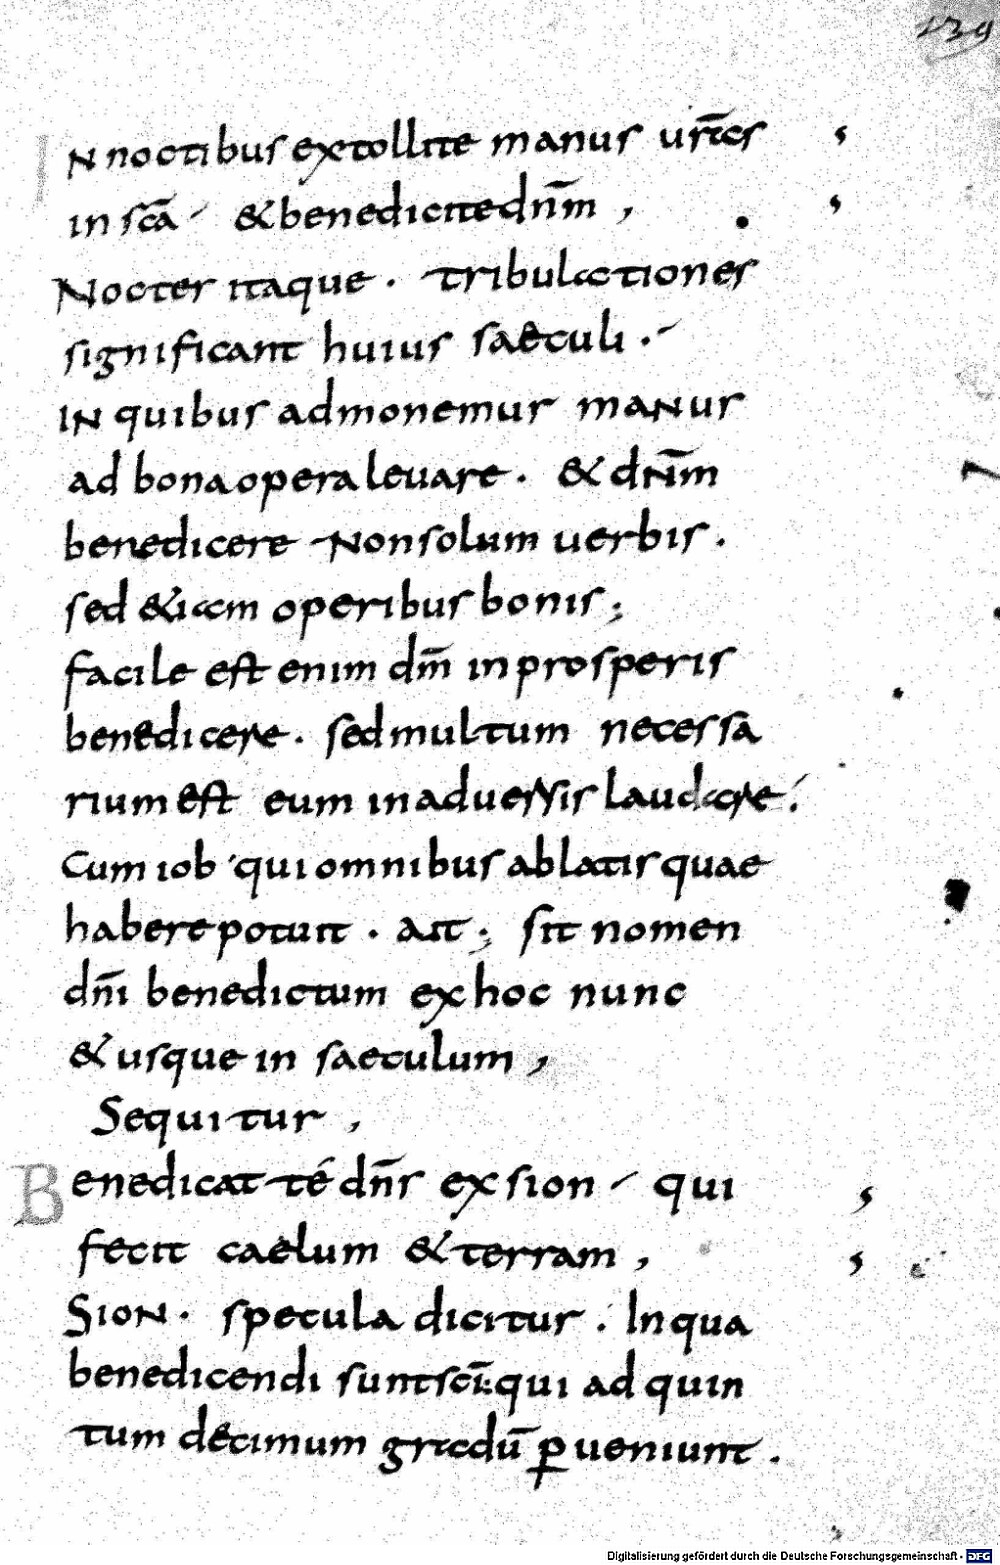 139
IN noctibus extollite manus ur̅as
in sc̅a & benedicite dn̅m,
Noctes itaque. tribulationes
significant huius saeculi.
IN quibus admonemur manus
ad bona opera leuare. & dn̅m
benedicere Non solum uerbis.
sed &iam operibus bonis;
facile est enim dm̅ in prosperis
benedicere. sed multum necessa
rium est eum in aduersis laudare.
Cum iob qui omnibus ablatis quae
habere potuit. ait; sit nomen
dn̅i benedictum ex hoc nunc
& usque in saeculum,
Sequitur,
Benedicat té dn̅s ex sion qui
fecit caelum & terram,
Sion. specula dicitur. In qua
benedicendi sunt sc̅i. qui ad quin
tum decimum gradu̅ p̲ueniunt.
Digitalisierung gefördert durch die Deutsche Forschungsgemeinschaft - DFG